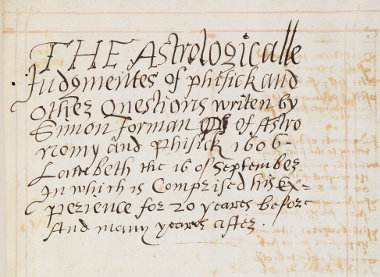 THE Astrologicalle
Judgmentes of phisick and
other Questions writen by
Simon Forman of Astro
nomy and Phisick 1606.
Lambeth the 16 of September
In which is Comprised his Ex-
perience for 20 yeares before
And many yeares after.